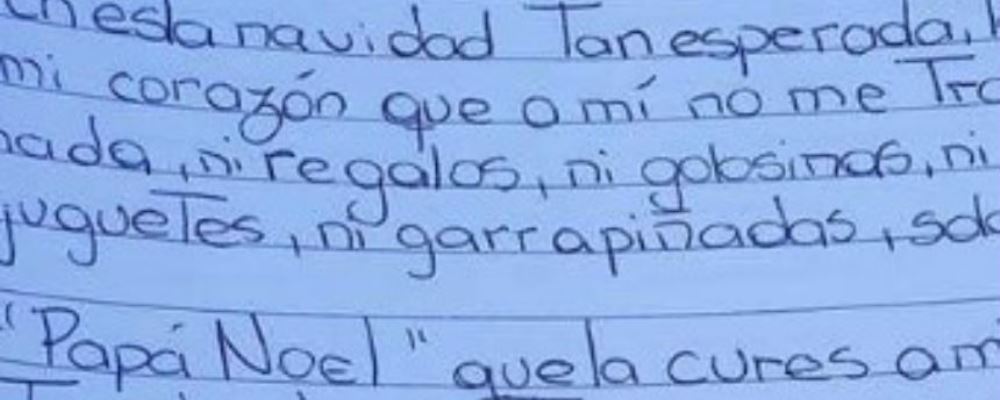 en esta navidad Tan esperada,
mi corazón que a mí no me
nada, ni regalos, ni golosinas, ni
jugueTes, ni garrapiñadas,
"Papá Noel" que la cures a